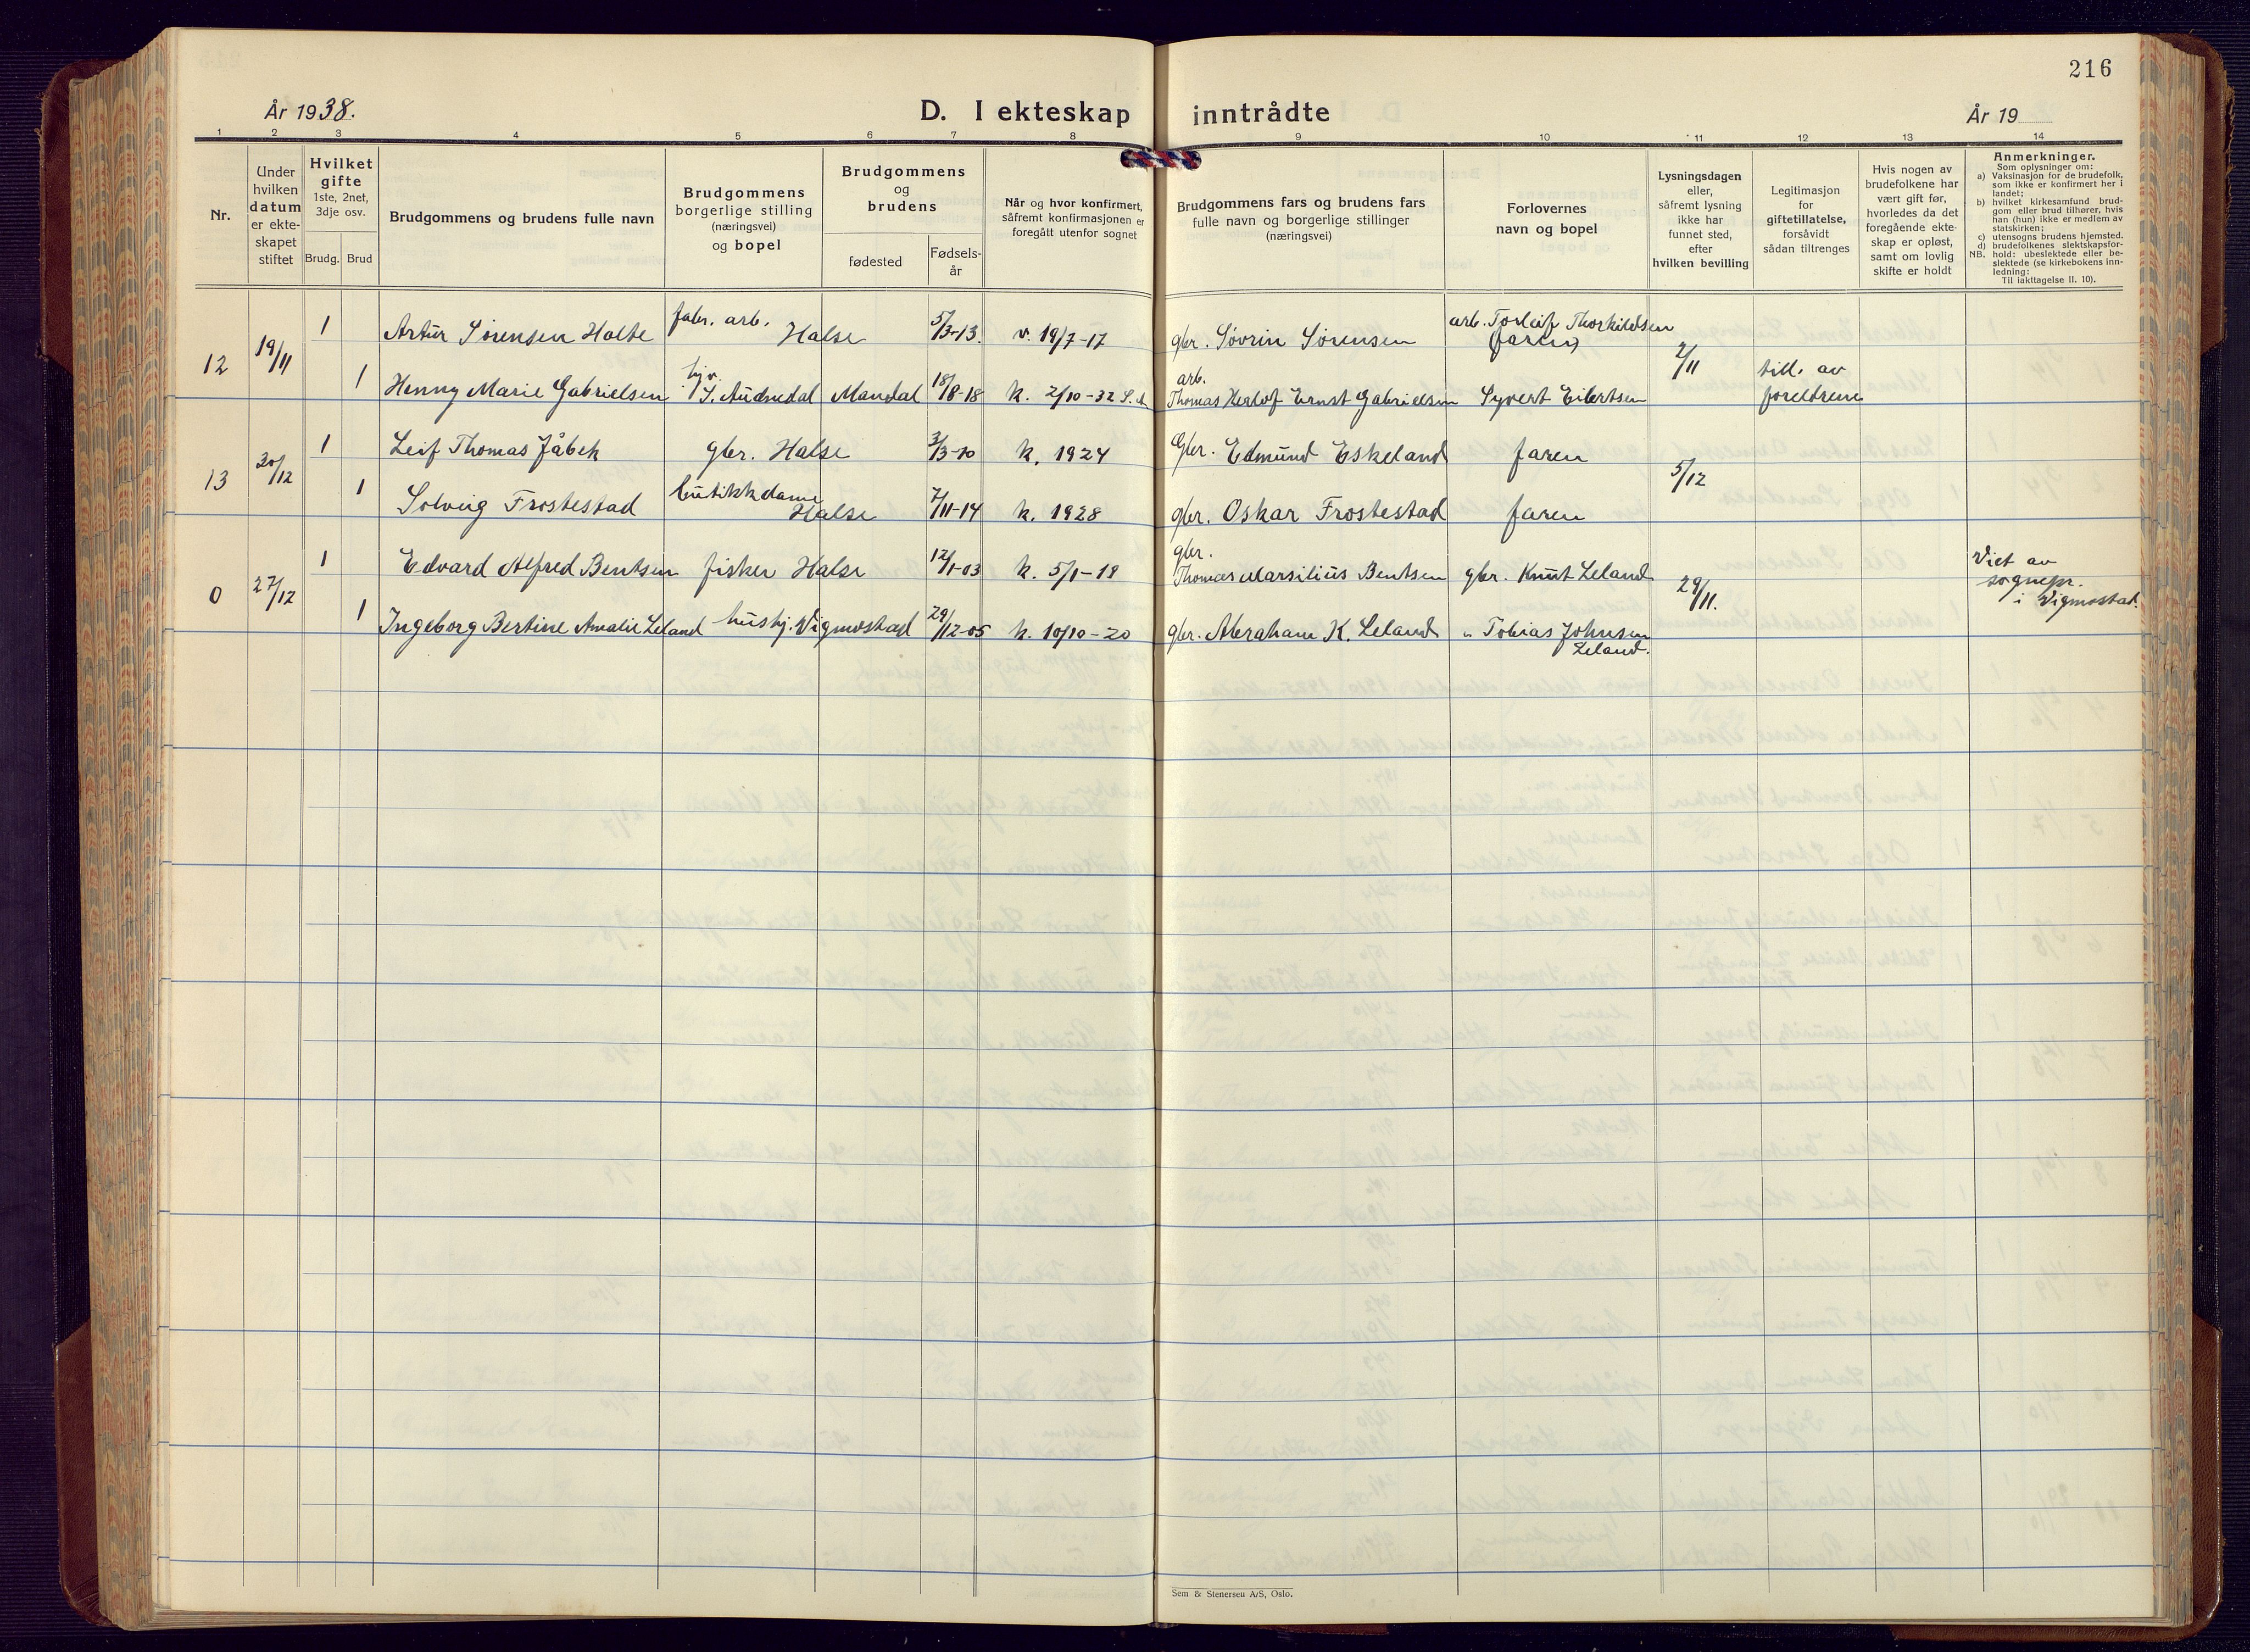 216
År 1938.
D. I ekteskap inntrådte
År 19
1 2 3 4 5 6 7 8 9 10 11 12 13 14
Nr.
Under
hvilken
datum
er ekte-
skapet
stiftet
Hvilket
gifte
1ste, 2net,
3dje osv.
Brudg. Brud
Brudgommens og brudens fulle navn
Brudgommens
borgerlige stilling
(næringsvei)
og bopel
Brudgommens
og
brudens
fødested
Fødsels-
år
Når og hvor konfirmert,
såfremt konfirmasjonen er
foregått utenfor sognet
Brudgommens fars og brudens fars
fulle navn og borgerlige stillinger
(næringsvei)
Forlovernes
navn og bopel
Lysningsdagen
eller,
såfremt lysning
ikke har
funnet sted,
efter
hvilken bevilling
Legitimasjon
for
giftetillatelse,
forsåvidt
sådan tiltrenges
Hvis nogen av
brudefolkene har
vært gift før,
hvorledes da det
foregående ekte-
skap er opløst,
samt om lovlig
skifte er holdt
Anmerkninger.
Som oplysninger om:
a) Vaksinasjon for de brudefolk,
som ikke er konfirmert her i
landet;
b) hvilket kirkesamfund brud-
gom eller brud tilhører, hvis
han (hun) ikke er medlem av
statskirken;
c) utensogns brudens hjemsted.
d) brudefolkenes slektskapsfor-
NB. hold: ubeslektede eller be-
slektede (se kirkebokens inn-
ledning:
Til iakttagelse II. 10).
12 19/11 1 Artur Sørensen Halse fabr. arb. Halse 5/3-13. v. 19/7-17 gbr. Søvrin Sørensen arb. Torleif Thorkildsen
(faren)
2/11 till. av
foreldrene
1 Henny Marie Gabrielsen hjv. S. Audnedal Mandal 18/8-18 k. 2/10-32 S. A arb.
Thomas Herlof Ernst Gabrielsen Syvert Eilertsen
13 30/12 1 Leif Thomas Jåbek gbr. Halse 3/3-10 k. 1924 Gbr. Edmund Eskeland faren 5/12
1 Solveig Frostestad butikkdame
Halse 7/11-14 k. 1928 gbr. Oskar Frostestad faren
0 27/12 1 Edvard Alfred Bentsen fisker Halse 12/1-03 k. 5/1-19 gbr.
Thomas Marsilius Bentsen gbr. Knut Leland 29/11. Viet av
sognepr.
i Vigmostad.
1 Ingeborg Bertine Amalie Leland hushj. Vigmostad 29/12-05 k. 10/10-20 gbr. Abraham K. Leland " Tobias Johnsen
Leland.
Sem & Stenersen A/S, Oslo.